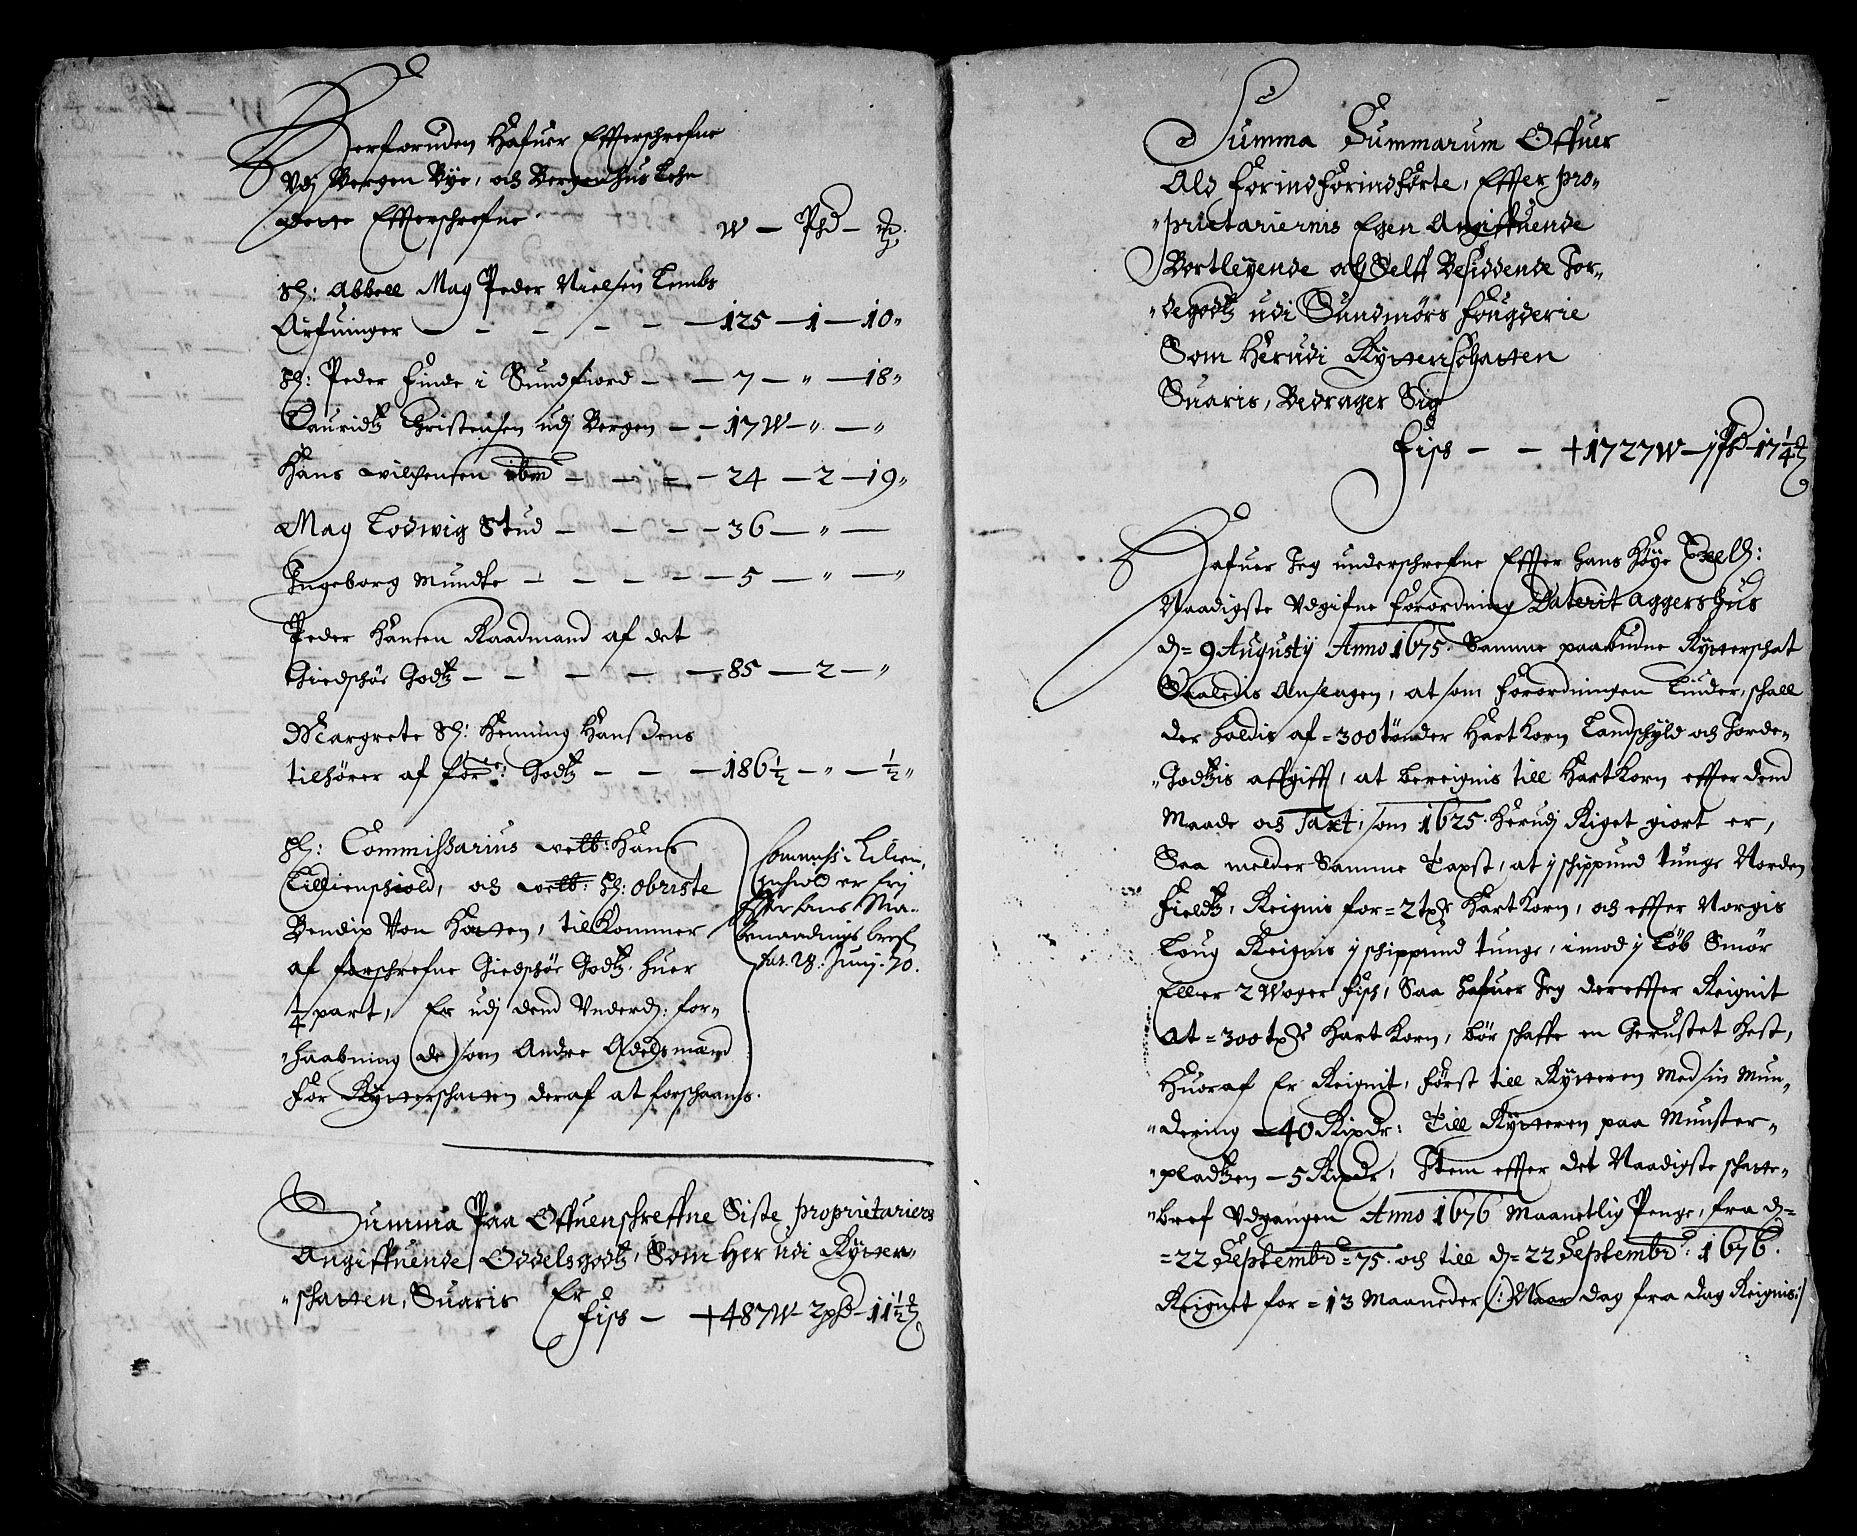 Herforuden Hafuer Effterschrefne
Vdj Bergen Bye, och Bergenhus Lehn
Dette Effterschrefne.
W — Pd —
Sl: Abbell Mag Peder Nielsen Lembs
Arfuinger — — — — — 125 — 1 — 10 "
Sl: Peder Finde i Sundfiord — — 7 — " — 18 "
Lauridtz Christensen udj Bergen — — 17 W — " — "
Hans willumsen ibm — — — — 24 — 2 — 19 "
Mag Lodwig Stud — — — — 36 — " —
Ingeborg Mundte — — — — — 5 — " — "
Peder Hansen Raadmand af det
Giedschøe Godtz — — — — — 85 — 2 — "
Margrete Sl: Henning Hanßens
tilhører af forne: Godtz — — — 186½ — " — ½ "
Sl: Commissarius welb: Hans
Lillienschiold, och welb: Sl: Obriste
Bendix Von Hatten, tilkommer
af forschrefne Giedschøe Godtz huer
¼ part, Er udj dend Underd: for-
"haabning (de) som Andre Adelsmænd
for Rytterschatten deraf at forschaanis.
Commiss: Lilien-
schiold er frj
effter hans Ma.
benaadnings bref
dat. 28. Junij. 70.
Summa Paa Offuenschreffne Siste proprietariers
Angiffuende Oddelsgodtz, Som Her udi Rytter-
"schatten, Suaris Er
Fisch — + 487 W — 2 pd — 11½
Summa Summarum Offuer
Ald forindførindførte, Effter pro-
"prietariernis Egen Angiffuende
Bortleyende och Selff Besiddende Jor-
"degodtz udi Sundmørs Fougderie
Som Herudi Rytterschatten
Suaris, Bedrager Sig
Fisch — — + 1727 W — 1 Pd — 17¼
Hafuer Jeg underschrefne Effter Hans Høye Excell:
Naadigste Udgifne forordning Daterit Aggershus
d= 9 Augustij Anno 1675. Samme paabudne Rytterschat
Saaledis Anslagen, at som forordningen Liuder, schall
der holdis af = 300 tønder Hart Korn Landschyld och Jorde-
"Godtzis affgifft, at bereignis till Hart Korn effter dend
Maade och Taxt, som 1625. Herudj Riget giort er,
Saa melder Samme Taxst, at j schippund tunge Norden
Fieldtz, Reignis for = 2 tdr Hart Korn, och effter Norgis
Loug Reignis j schippund tunge, imod j Løb Smør
Eller 2 Woger Fisch, Saa Hafuer Jeg dereffter Reignit
At = 300 tdr Hart Korn, bør schaffe en Gerustet Hest,
Huoraf Er Reignit, først till Rytteren Med sin Mun-
"dering — 40 Rixdr: Till Rytteren paa Munster-
"pladtzen — 5 Rixdr, Item effter det Naadigste schatte-
"bref Udgangen Anno 1676 Maanetlig Penge, fra d=
= 22 Septembr = 75. och till d= 22 Septembr: 1676.
Reignet for = 13 Maaneder (: Naar dag fra dag Reignis :)